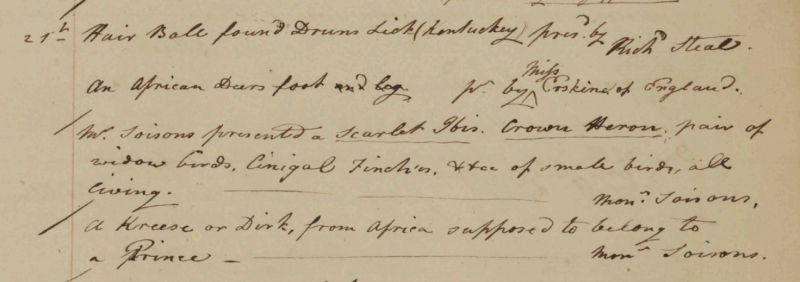 25th Hair Ball found Druns Lick (Kentucky) pres.d by Rich.d Steal.
An African Deers foot and leg pr. by Miss Erskine of England.
Mr. Soisons presented a Scarlet Ibis. Crown Heron, pair of
widow birds, Cinigal Finches, &&ca of small birds, all
living. Mon.r Soisons,
A Kreese or Dirk, from Africa supposed to belong to
a Prince — Mon.r Soisons.